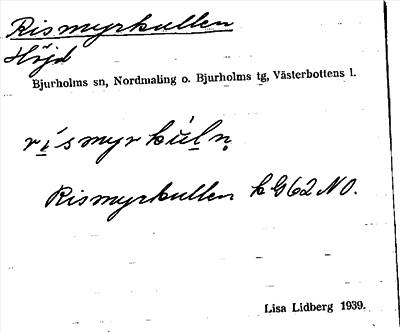 Rismyrkullen
Höjd
Bjurholms sn, Nordmaling o. Bjurholms tg, Västerbottens l.
rí̲smyrkúl̲n̥
Rismyrkullen k G62 NO.
Lisa Lidberg 1939.